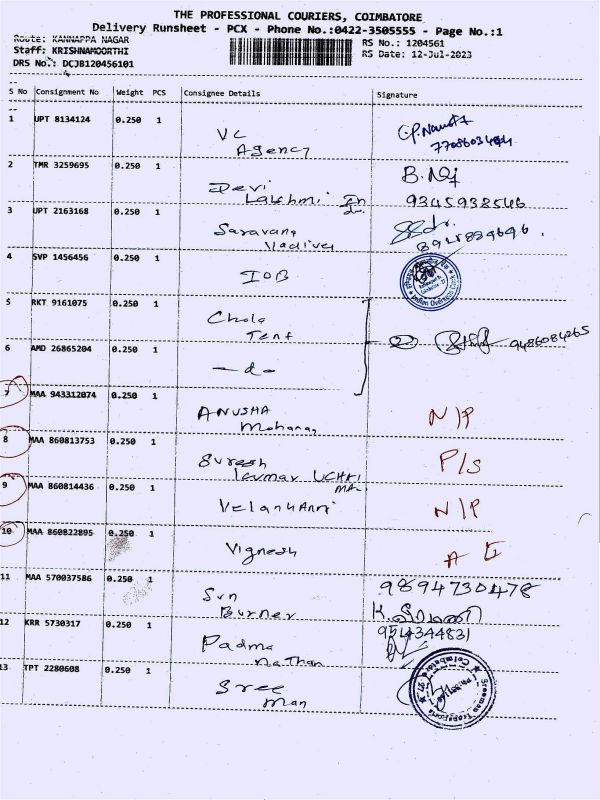 THE PROFESSIONAL COURIERS, COIMBATORE
Delivery Runsheet - PCX - Phone No.:0422-3505555 - Page No.:1
Route: KANNAPPA NAGAR
RS No.: 1204561
Staff: KRISHNAMOORTHI
RS Date: 12-Jul-2023
DRS No.: DCJB120456101
S No Consignment No Weight PCS Consignee Details Signature
1 UPT 8134124 0.250 1
VC
Agency
2 TMR 3259695 0.250 1
Devi
Lakshmi
9345938546
3 UPT 2163168 0.250 1
Saravana
Vadivel
4 SVP 1456456 0.250 1
IOB
5 RKT 9161075 0.250 1
Chola
Tent
9486084265
6 AMD 26865204 0.250 1
-do-
7 MAA 943312074 0.250 1
ANUSHA
Mohanan
N/P
8 MAA 860813753 0.250 1
Suresh
Kumar
P/S
9 MAA 860814436 0.250 1
Velankanni
N/P
10 MAA 860822895 0.250 1
Vignesh
11 MAA 570037586 0.250 1
Sun
Burner
9894730478
12 KRR 5730317 0.250 1
Padma
Nathan
9514344831
13 TPT 2280608 0.250 1
Sree
Man